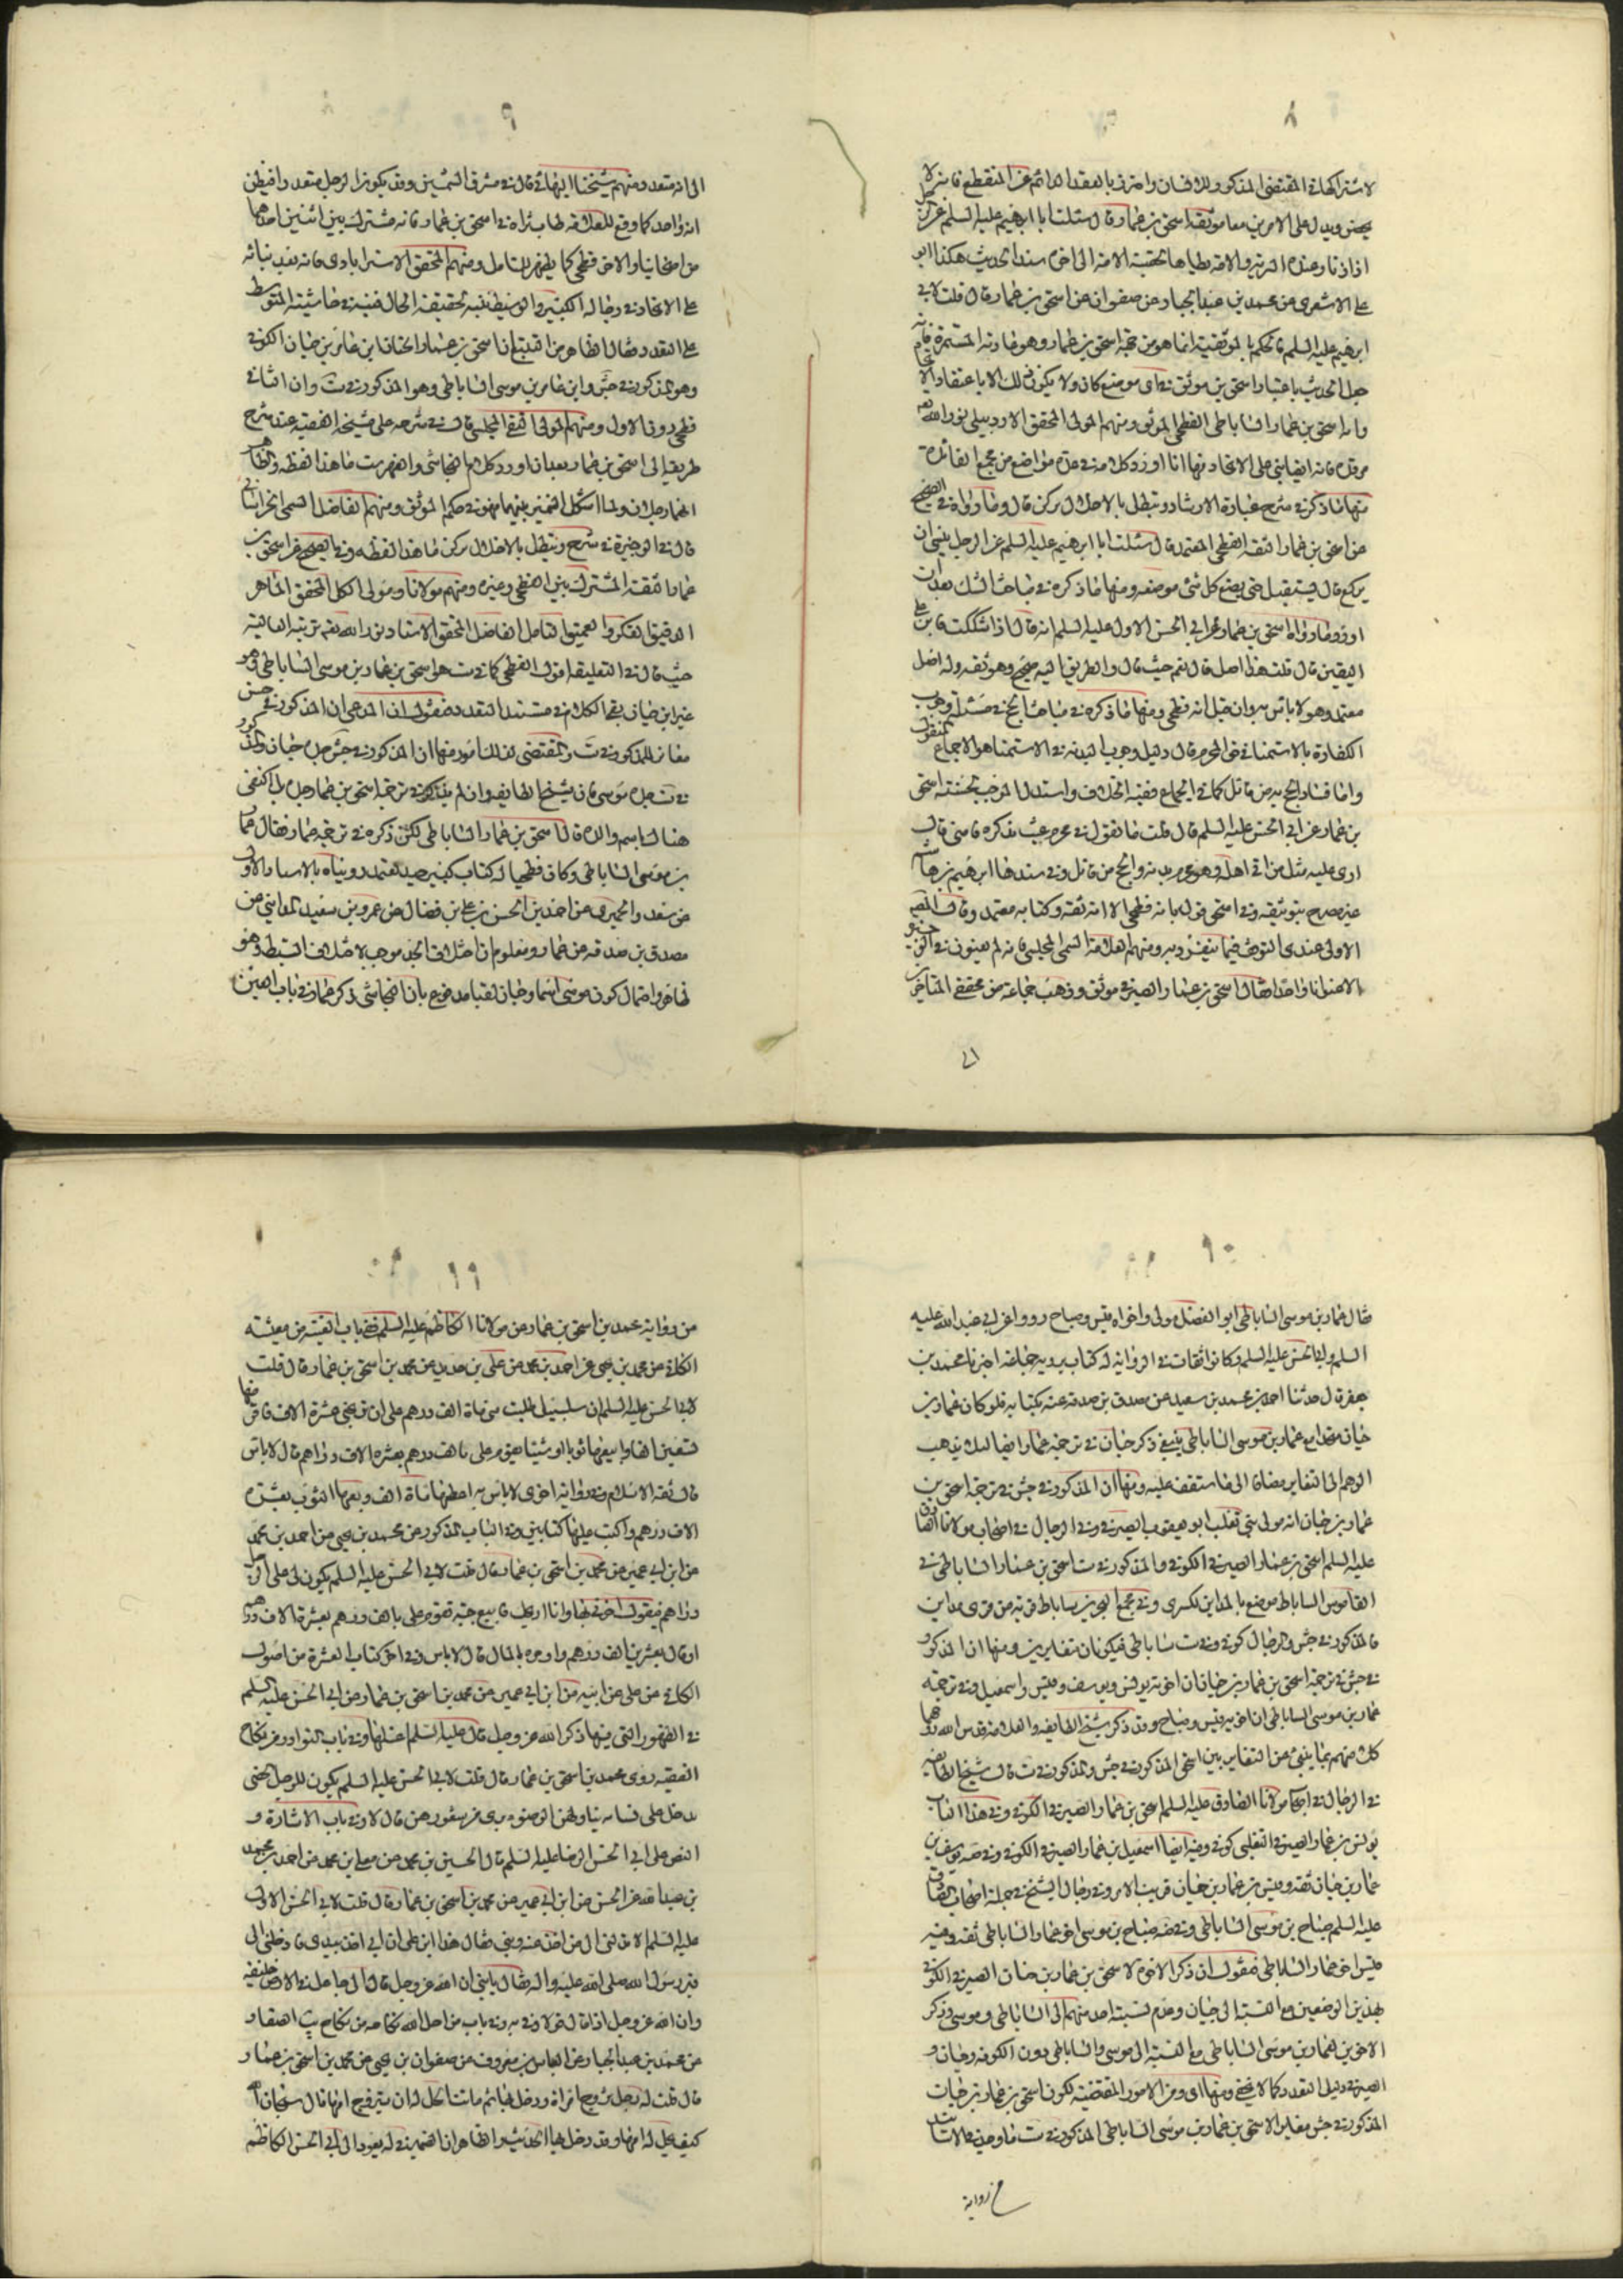 ٨
لاشتراكهما في المقتضى المذكور وللافسان واحترق بالعقد الدائم عن المنقطع فانه لا
يحصن ويدل على الامرين معا موثقة اسحق بن عمار قال سئلت ابا ابرهيم عليه السلم عن الرجل
اذا زنا وعنده السرية والامة يطاها تحصنه الامة الى اخره سند الحديث هكذا ابو
على الاشعرى عن محمد بن عبد الجبار عن صفوان عن اسحق بن عمار قال قلت لابى
ابرهيم عليه السلم فالحكم بالموثقية انما هو من جهة اسحق بن عمار وهو عادته المستمرة فانه
جعل الحديث باعتبار اسحق بن موثق في اى موضع كان ولا يكون ذلك الا باعتقاد الاتحاد
وانه اسحق بن عمار الساباطى الفطحى الموثق ومنهم المولى المحقق الاردبيلى نور الله
مرقده فانه ايضا بنى على الاتحاد فها انا اورد كلامه في عدة مواضع من مجمع الفائدة
منها ما ذكره في شرح عبارة الارشاد وتبطل بالاخلال بركن قال وما رواه في الصحيح
عن اسحق بن عمار الثقة الفطحى المعتمد قال سئلت ابا ابرهيم عليه السلم عن الرجل ينسى ان
يركع قال يستقبل حتى يضع كل شئ موضعه ومنها ما ذكره في مباحث الشك بعد ان
اورد ما رواه اسحق بن عمار عن ابى الحسن الاول عليه السلم انه قال اذا شككت فابن على
اليقين قال قلت هذا اصل قال نعم حيث قال والطريق اليه صحيح وهو ثقة وله اصل
معتمد وهو لا باس به وان قيل انه فطحى ومنها ما ذكره في مباحث الحج في مسئلة وجوب
الكفارة بالاستمناء في المحرم قال دليل وجوب البدنة في الاستمنا هو الاجماع المنقول
واما فساد الحج به من قائل كما في الجماع ففيه الخلاف واستدل الموجب بحسنة اسحق
بن عمار عن ابى الحسن عليه السلم قال قلت ما تقول في محرم عبث بذكره فامنى قال
ارى عليه مثل من اتى اهله وهو محرم بدنة والحج من قابل وفي سندها ابرهيم بن هاشم
غير مصرح بتوثيقه وفي اسحق قول بانه فطحى الا انه ثقة وكتابه معتمد وقال
الاولى عندى التوقف فيما ينفرد به ومنهم العلامة السمى المجلسى فانه لم يعنون في الوجيزة
الا عنوانا واحدا فقال اسحق بن عمار الصيرفى موثق وذهب جماعة من محققى المتاخرين
الى
٩
الى انه متعدد ومنهم شيخنا البهائى قال في مشرق الشمسين وقد يكون الرجل متعددا فيظن
انه واحد كما وقع للعلامة طاب ثراه في اسحق بن عمار فانه مشترك بين اثنين احدهما
من اصحابنا والاخر فطحى كما يظهر للمتامل ومنهم المحقق الاسترابادى فانه بعد بنائه
على الاتحاد في رجاله الكبير والوسيط تنبه لحقيقة الحال فنبه في حاشيته المتوسط
على التعدد فقال الظاهر من التتبع ان اسحق بن عمار اثنان ابن عمار بن حيان الكوفى
وهو المذكور في جش وابن عمار بن موسى الساباطى وهو المذكور في ست وان الثانى
فطحى دون الاول ومنهم المولى التقى المجلسى قال في شرحه على مشيخة الفقيه عند شرح
طريقه الى اسحق بن عمار بعد ان اورد كلام النجاشى والفهرست ما هذا لفظه والظاهر
انهما رجلان ولما اشكل التمييز بينهما فهو في حكم الموثق ومنهم الفاضل السمى الخراسانى
قال في الذخيرة في شرح وتبطل بالاخلال بركن ما هذا لفظه وفي الصحيح عن اسحق بن
عمار الثقة المشترك بين الفطحى وغيره ومنهم مولانا ومولى الكل المحقق الماهر
الدقيق الفكر والعميق التامل الفاضل المحقق الاستاد نور الله تعه تربته العالية
حيث قال في التعليقة اقول الفطحى كما في ست هو اسحق بن عمار بن موسى الساباطى وهو
غير ابن حيان بقى الكلام في مستند التعدد فنقول ان المدعى ان المذكور في جش
مغاير للمذكور في ست والمقتضى لذلك امور منها ان المذكور في جش جده حيان والمذكور
في ست جده موسى فان شيخ الطايفه وان لم يذكره في ترجمة اسحق بن عمار جده بل اكتفى
هناك باسم والده قال اسحق بن عمار الساباطى لكن ذكره في ترجمة عمار فقال عمار
بن موسى الساباطى وكان فطحيا له كتاب كبير جيد معتمد رويناه بالاسناد الاول
عن سعد والحميرى عن احمد بن الحسن بن على بن فضال عن عمرو بن سعيد المداينى عن
مصدق بن صدقه عن عمار ومعلوم ان اختلاف الجد موجب لاختلاف السبط وهو
ظاهر واحتمال كون موسى اسما وحيان لقبا مدفوع بان النجاشى ذكر عمار في باب العين
١٠
فقال عمار بن موسى الساباطى ابو الفضل مولى واخواه قيس وصباح رووا عن ابى عبد الله عليه
السلم وابى الحسن عليه السلم وكانوا ثقات في الرواية له كتاب يرويه جماعة اخبرنا محمد بن
جعفر قال حدثنا احمد بن محمد بن سعيد عن مصدق بن صدقه عنه بكتابه فلو كان عمار بن
حيان متحدا مع عمار بن موسى الساباطى ينبغى ذكر حيان في ترجمة عمار ايضا لئلا يذهب
الوهم الى التغاير مضافا الى ما ستقف عليه ومنها ان المذكور في جش في ترجمة اسحق بن
عمار بن حيان انه مولى بنى تغلب ابو يعقوب الصيرفى وفي الرجال في اصحاب مولانا الصادق
عليه السلم اسحق بن عمار الصيرفى الكوفى والمذكور في ست اسحق بن عمار الساباطى في
القاموس الساباط موضع بالمداين لكسرى وفي مجمع البحرين ساباط قرية من قرى مداين
فالمذكور في جش والرجال كوفى وفي ست ساباطى فيكونان متغايرين ومنها ان المذكور
في جش في ترجمة اسحق بن عمار بن حيان ان اخوته يونس ويوسف وقيس واسمعيل وفي ترجمة
عمار بن موسى الساباطى ان اخويه قيس وصباح وقد ذكر شيخ الطايفه والعلامة قدس الله روحهما
كل منهم بما ينبئ عن التغاير بين اسحق المذكور في جش والمذكور في ست قال شيخ الطايفه
في الرجال في اصحاب مولانا الصادق عليه السلم اسحق بن عمار الصيرفى الكوفى وفي هذا الباب
يونس بن عمار الصيرفى التغلبى كوفى وفيه ايضا اسمعيل بن عمار الصيرفى الكوفى وفي صه يوسف بن
عمار بن حيان ثقه وقيس بن عمار بن حيان قريب الامر وفي رجال الشيخ في جملة اصحاب الصادق
عليه السلم صباح بن موسى الساباطى وفي صه صباح بن موسى اخو عمار الساباطى ثقه وفيه
قيس اخو عمار الساباطى فنقول ان ذكر الاخوة لاسحق بن عمار بن حيان الصيرفى الكوفى
بهذين الوصفين مع النسبة الى حيان وعدم نسبة احد منهم الى الساباطى وموسى وذكر
الاخوين لعمار بن موسى الساباطى مع النسبة الى موسى والساباطى دون الكوفه وحيان و
الصيرفى دليل التعدد كما لا يخفى ومنها اى ومن الامور المقتضية لكون اسحق بن عمار بن حيان
المذكور في جش مغايرا لاسحق بن عمار بن موسى الساباطى المذكور في ست ما وجدنا بالاسانيد
من رواية
١١
من رواية محمد بن اسحق بن عمار عن مولانا الكاظم عليه السلم ففى باب العينه من معيشه
الكافى عن محمد بن يحيى عن احمد بن محمد عن على بن حديد عن محمد بن اسحق بن عمار قال قلت
لابى الحسن عليه السلم ان سلسبيل طلبت منى مائة الف درهم على ان تربحنى عشرة الاف فاقرضها
تسعين الفا وابيعها ثوبا او شيئا تقوم على بالف درهم بعشرة الاف دراهم قال لا باس
قال ثقة الاسلام وفي رواية اخرى لا باس به اعطها مائة الف وبعها الثوب بعشرة
الاف درهم واكتب عليها كتابين وفي الباب المذكور عن محمد بن يحيى عن احمد بن محمد
عن ابن ابى عمير عن محمد بن اسحق بن عمار قال قلت لابى الحسن عليه السلم يكون لى على الرجل
دراهم فيقول اخرنى بها وانا اربحك فابيع جبة تقوم على بالف درهم بعشرة الاف درهم
او قال بعشرين الف درهم واوخره بالمال قال لا باس وفي اخر كتاب العشرة من اصول
الكافى عن على عن ابيه عن ابن ابى عمير عن محمد بن اسحق بن عمار عن ابى الحسن عليه السلم
في الظهور التى فيها ذكر الله عز وجل قال عليه السلم اغسلها وفي باب النوادر من نكاح
الفقيه روى محمد بن اسحق بن عمار قال قلت لابى الحسن عليه السلم يكون للرجل الخصى
يدخل على نسائه يناولهن الوضوء فيرى من شعورهن قال لا وفي باب الاشارة و
النص على ابى الحسن الرضا عليه السلم قال الحسين بن محمد عن معلى بن محمد عن احمد بن محمد
بن عبد الله عن الحسن عن ابن ابى عمير عن محمد بن اسحق بن عمار قال قلت لابى الحسن الاول
عليه السلم الا تدلنى الى من اخذ عنه دينى فقال هذا ابنى على ان ابى اخذ بيدى فادخلنى الى
قبر رسول الله صلى الله عليه واله فقال يا بنى ان الله عز وجل قال انى جاعل في الارض خليفة
وان الله عز وجل اذا قال قولا وفى به وفي باب من احل الله نكاحه من نكاح يب الصفار
عن محمد بن عبد الجبار عن العباس بن معروف عن صفوان بن يحيى عن محمد بن اسحق بن عمار
قال قلت له رجل تزوج امراة ودخل بها ثم ماتت ايحل له ان يتزوج امها قال سبحان الله
كيف يحل له امها وقد دخل بها الحديث والظاهر ان الضمير في له يعود الى ابى الحسن الكاظم